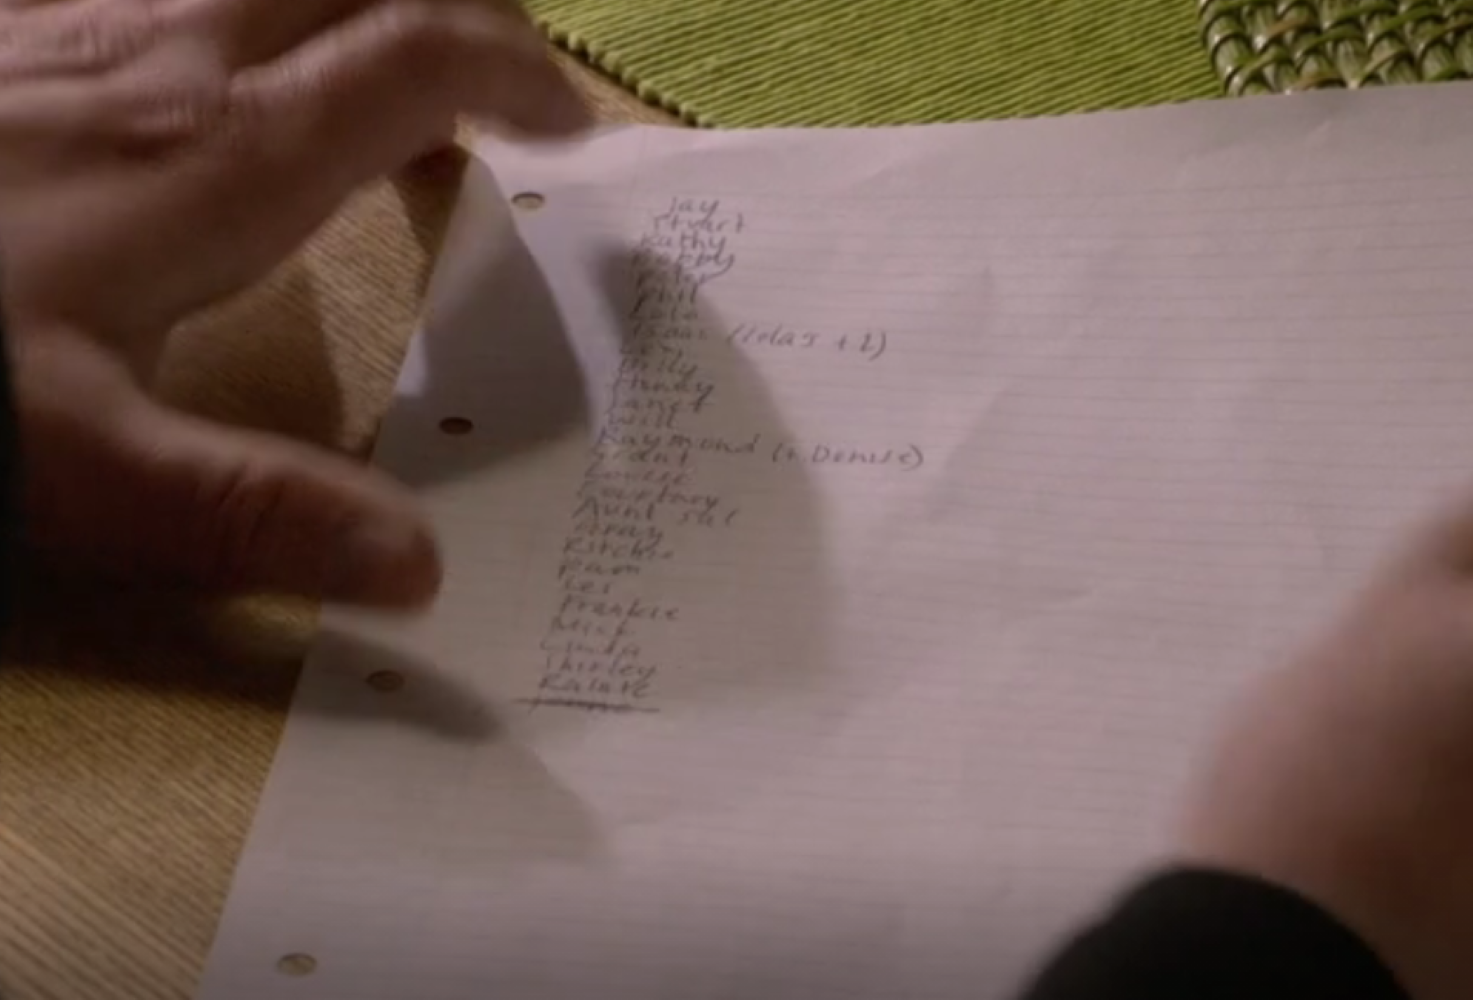 Jay
Stuart
Kathy
Peter
Phil
Isaac
Billy
Honey
Janet
Will
Raymond (+ Denise)
Grant
Louise
Courtney
Aunt Sal
Gray
Ritchie
Ram
Les
Frankie
Mick
Linda
Shirley
Rainie